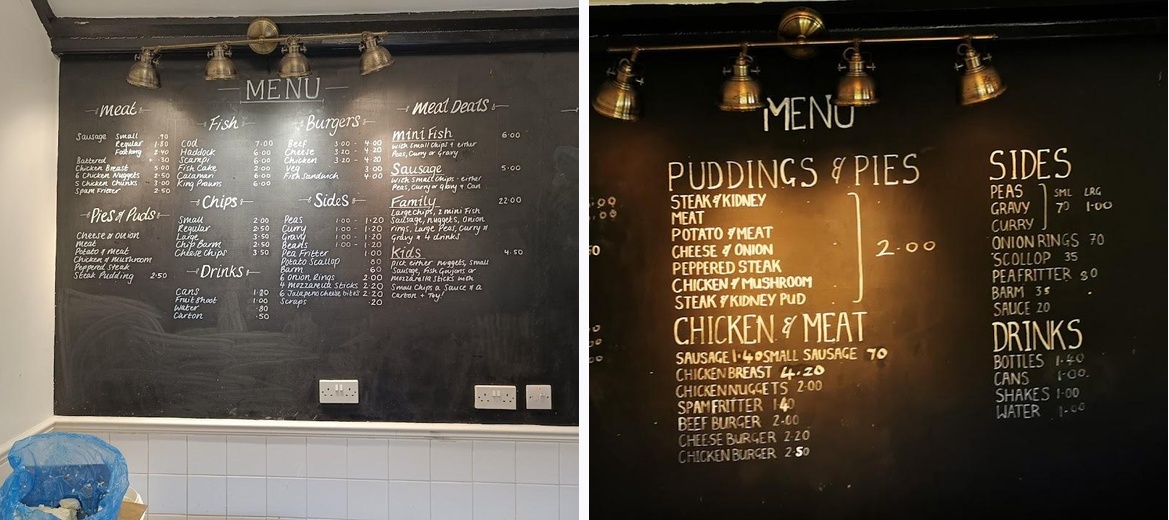 MENU
Meat
Sausage Small .70
Regular 1.80
Footlong 2.40
Battered + .30
Chicken Breast 5.00
6 Chicken Nuggets 2.50
5 Chicken Chunks 3.00
Spam Fritter 2.50
Pies & Puds
Cheese & Onion
Meat
Potato & Meat
Chicken & Mushroom
Peppered Steak
Steak Pudding 2.50
Fish
Cod 7.00
Haddock 6.00
Scampi 6.00
Fish Cake 2.00
Calamari 6.00
King Prawns 6.00
Chips
Small 2.00
Regular 2.50
Large 3.50
Chip Barm 2.50
Cheese Chips 3.50
Drinks
Cans 1.20
Fruit Shoot 1.00
Water .80
Carton .50
Burgers
Beef 3.00 - 4.00
Cheese 3.20 - 4.20
Chicken 3.20 - 4.20
Veg 3.00
Fish Sandwich 4.00
Sides
Peas 1.00 - 1.20
Curry 1.00 - 1.20
Gravy 1.00 - 1.20
Beans 1.00 - 1.20
Pea Fritter 1.00
Potato Scallop 80
Barm 60
6 Onion Rings 2.00
4 Mozzarella Sticks 2.20
6 Jalapeno cheese bites 2.20
Scraps .20
Meal Deals
mini Fish 6.00
With Small Chips & either
Peas, Curry or Gravy
Sausage 5.00
With Small Chips - either
Peas, Curry or Gravy & Can
Family 22.00
Large Chips, 2 mini Fish
Sausage, nuggets, Onion
rings, Large Peas, Curry &
Gravy & 4 drinks
Kids 4.50
pick either nuggets, Small
Sausage, Fish Goujons or
Mozzarella Sticks with
Small Chips a Sauce & a
Carton + Toy!
MENU
PUDDINGS & PIES
STEAK & KIDNEY
MEAT
POTATO & MEAT
CHEESE & ONION 2.00
PEPPERED STEAK
CHICKEN & MUSHROOM
STEAK & KIDNEY PUD
CHICKEN & MEAT
SAUSAGE 1.40 SMALL SAUSAGE 70
CHICKEN BREAST 4.20
CHICKEN NUGGETS 2.00
SPAM FRITTER 1.40
BEEF BURGER 2.00
CHEESE BURGER 2.20
CHICKEN BURGER 2.50
SIDES
PEAS SML LRG
GRAVY 70 1.00
CURRY
ONION RINGS 70
SCOLLOP 35
PEA FRITTER 80
BARM 35
SAUCE 20
DRINKS
BOTTLES 1.40
CANS 1.00
SHAKES 1.00
WATER 1.00